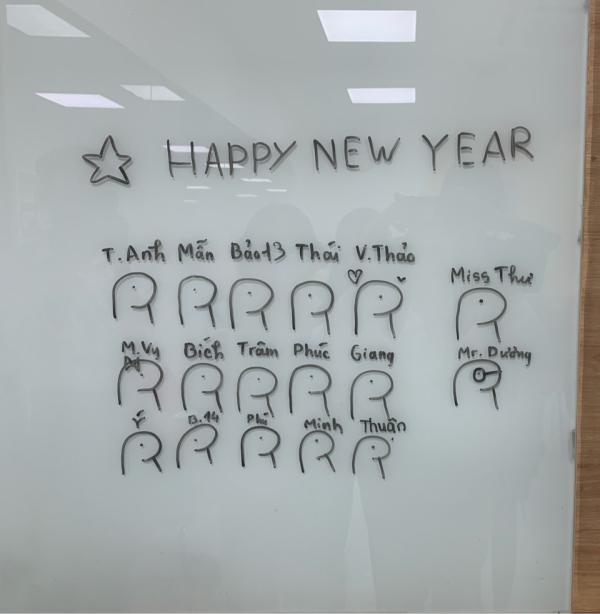 HAPPY NEW YEAR
T. Anh Mẫn Bảo13 Thái V.Thảo
Miss Thư
M.Vy Bích Trâm Phúc Giang
Mr. Dương
Ý B.14 Phú Minh Thuận